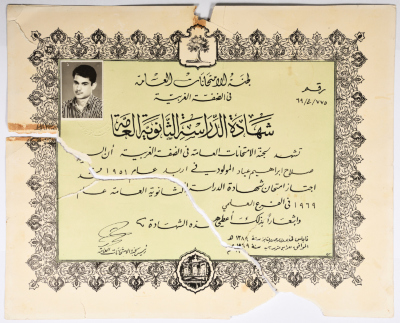 لجنة الامتحانات العامة
في الضفة الغربية
رقم
٦٩/٤/٧٧٥
شهادة الدراسة الثانوية العامة
تشهد لجنة الامتحانات العامة في الضفة الغربية أن السيد
صلاح ابراهيم عياد المولود في اربد عام ١٩٥١ قد
اجتاز امتحان شهادة الدراسة الثانوية العامة عام
١٩٦٩ في الفرع العلمي
واشعارا بذلك أعطي هذه الشهادة
نابلس في ١٣٨٩ هـ
رئيس لجنة الامتحانات العامة